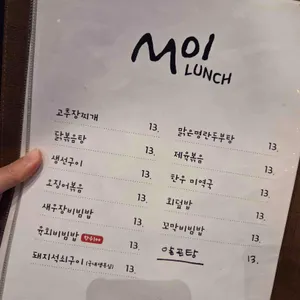 MOI
LUNCH
고추장찌개 13.
닭볶음탕 13.
생선구이 13.
오징어볶음 13.
새우장비빔밥 13.
육회비빔밥 13.
돼지석쇠구이 13.
맑은명란두부탕 13.
제육볶음 13.
한우 미역국 13.
회덮밥 13.
꼬막비빔밥 13.
알곤탕 13.